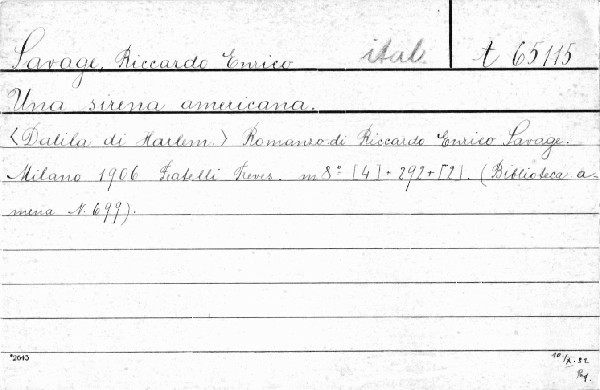 Savage, Riccardo Enrico ital. t 65115
Una sirena americana.
<Dalila di Harlem.> Romanzo di Riccardo Enrico Savage.
Milano 1906 Fratelli Treves. m8° [4]+292+[2]. (Biblioteca a-
mena N. 699).
*2040
10/X. 32